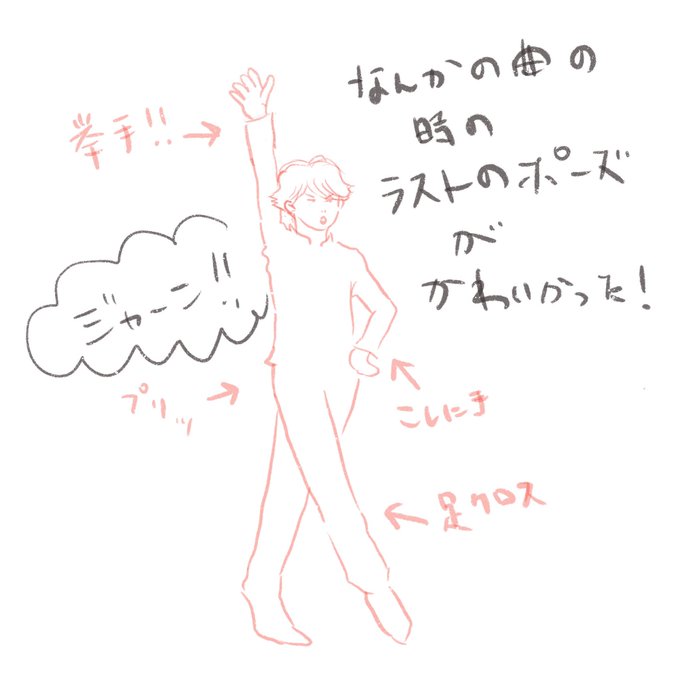 なんかの曲の
時の
ラストのポーズ
が
かわいかった!
挙手!!→
ジャーン!!
プリッ
こしに手
足クロス